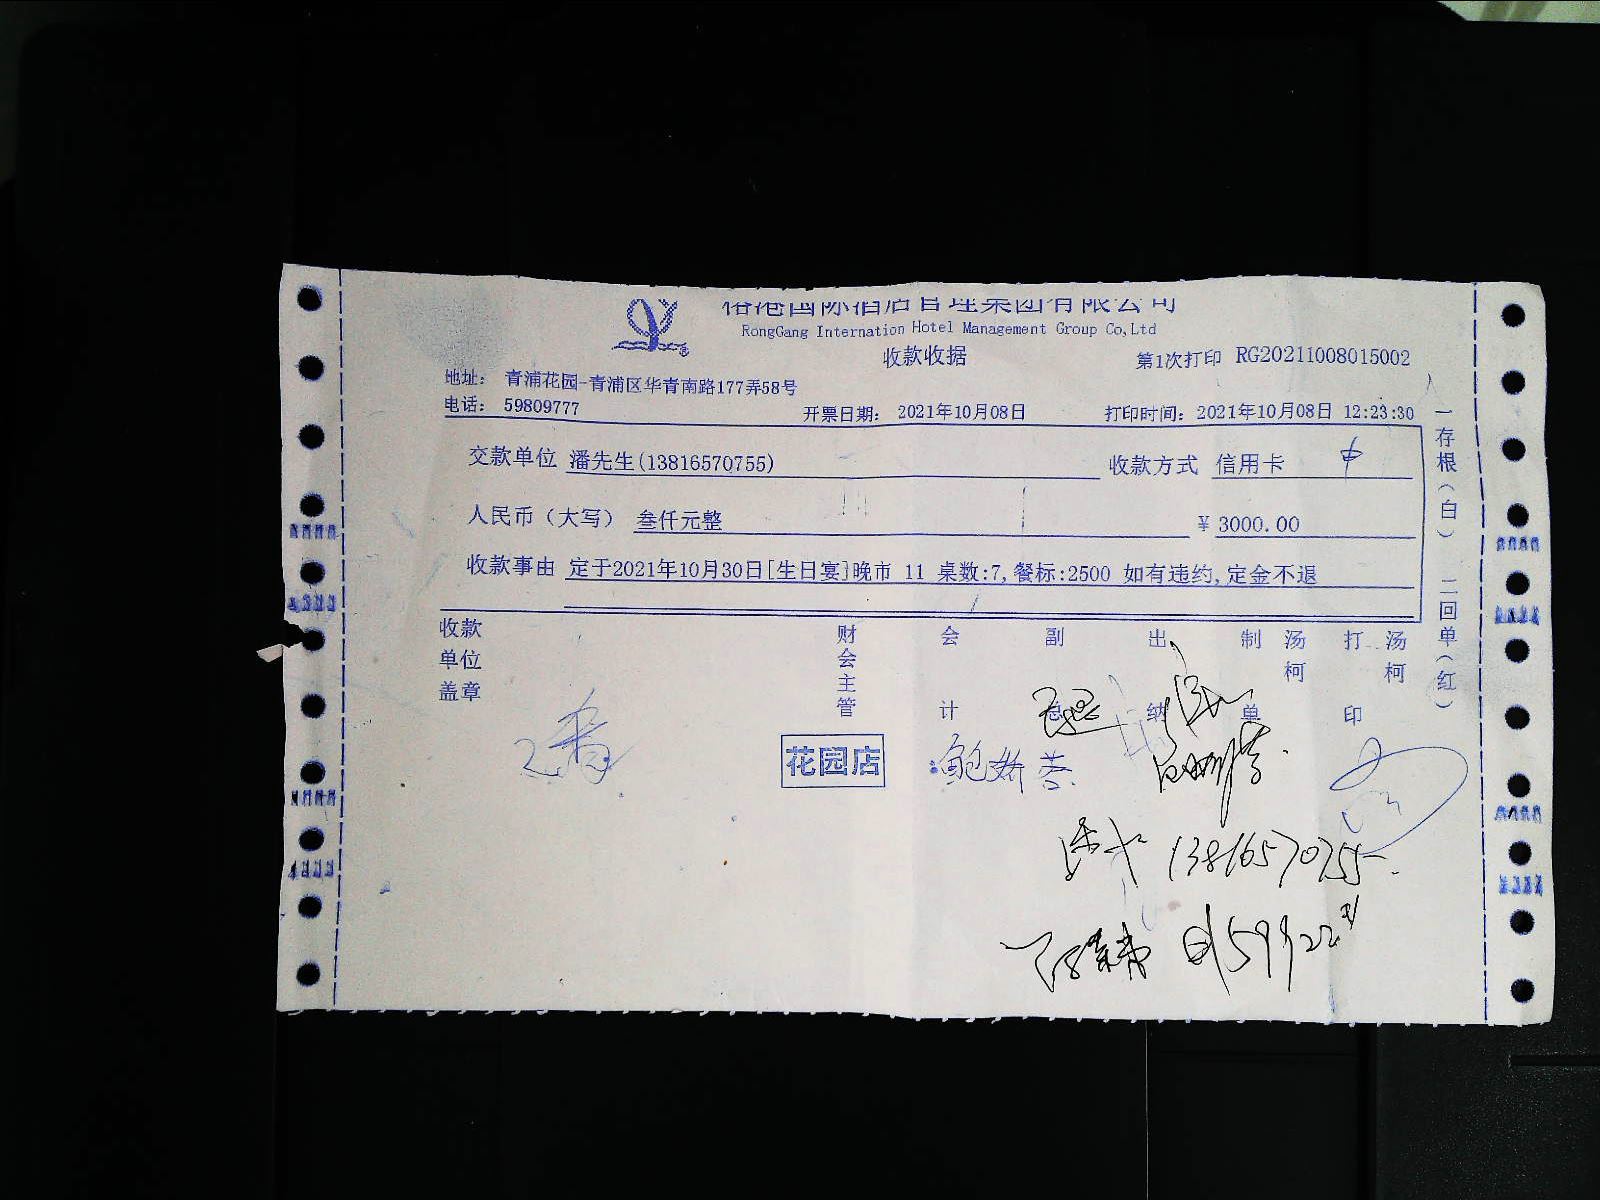 格港国际酒店管理集团有限公司
RongGang Internation Hotel Management Group Co,Ltd
收款收据
第1次打印 RG20211008015002
地址： 青浦花园-青浦区华青南路177弄58号
电话： 59809777
开票日期： 2021年10月08日
打印时间： 2021年10月08日 12:23:30
交款单位 潘先生(13816570755)
收款方式 信用卡
人民币（大写） 叁仟元整
￥ 3000.00
收款事由 定于2021年10月30日[生日宴]晚市 11 桌数:7,餐标:2500 如有违约,定金不退
一存根（白） 二回单（红）
收款单位盖章
财会主管
会计
副总
出纳
制单
汤柯
打印
汤柯
花园店
鲍娇蓉
13816570755